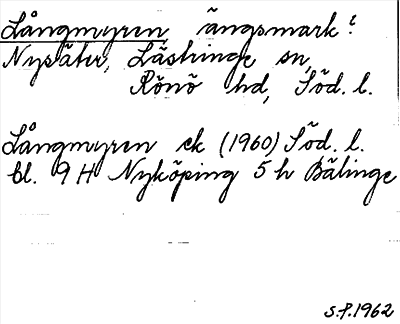 Långmyren ängsmark?
Nysäter, Lästringe sn,
Rönö hd, Söd. l.
Långmyren ek (1960) Söd. l.
bl. 9 H Nyköping 5 h Bälinge
S.P. 1962